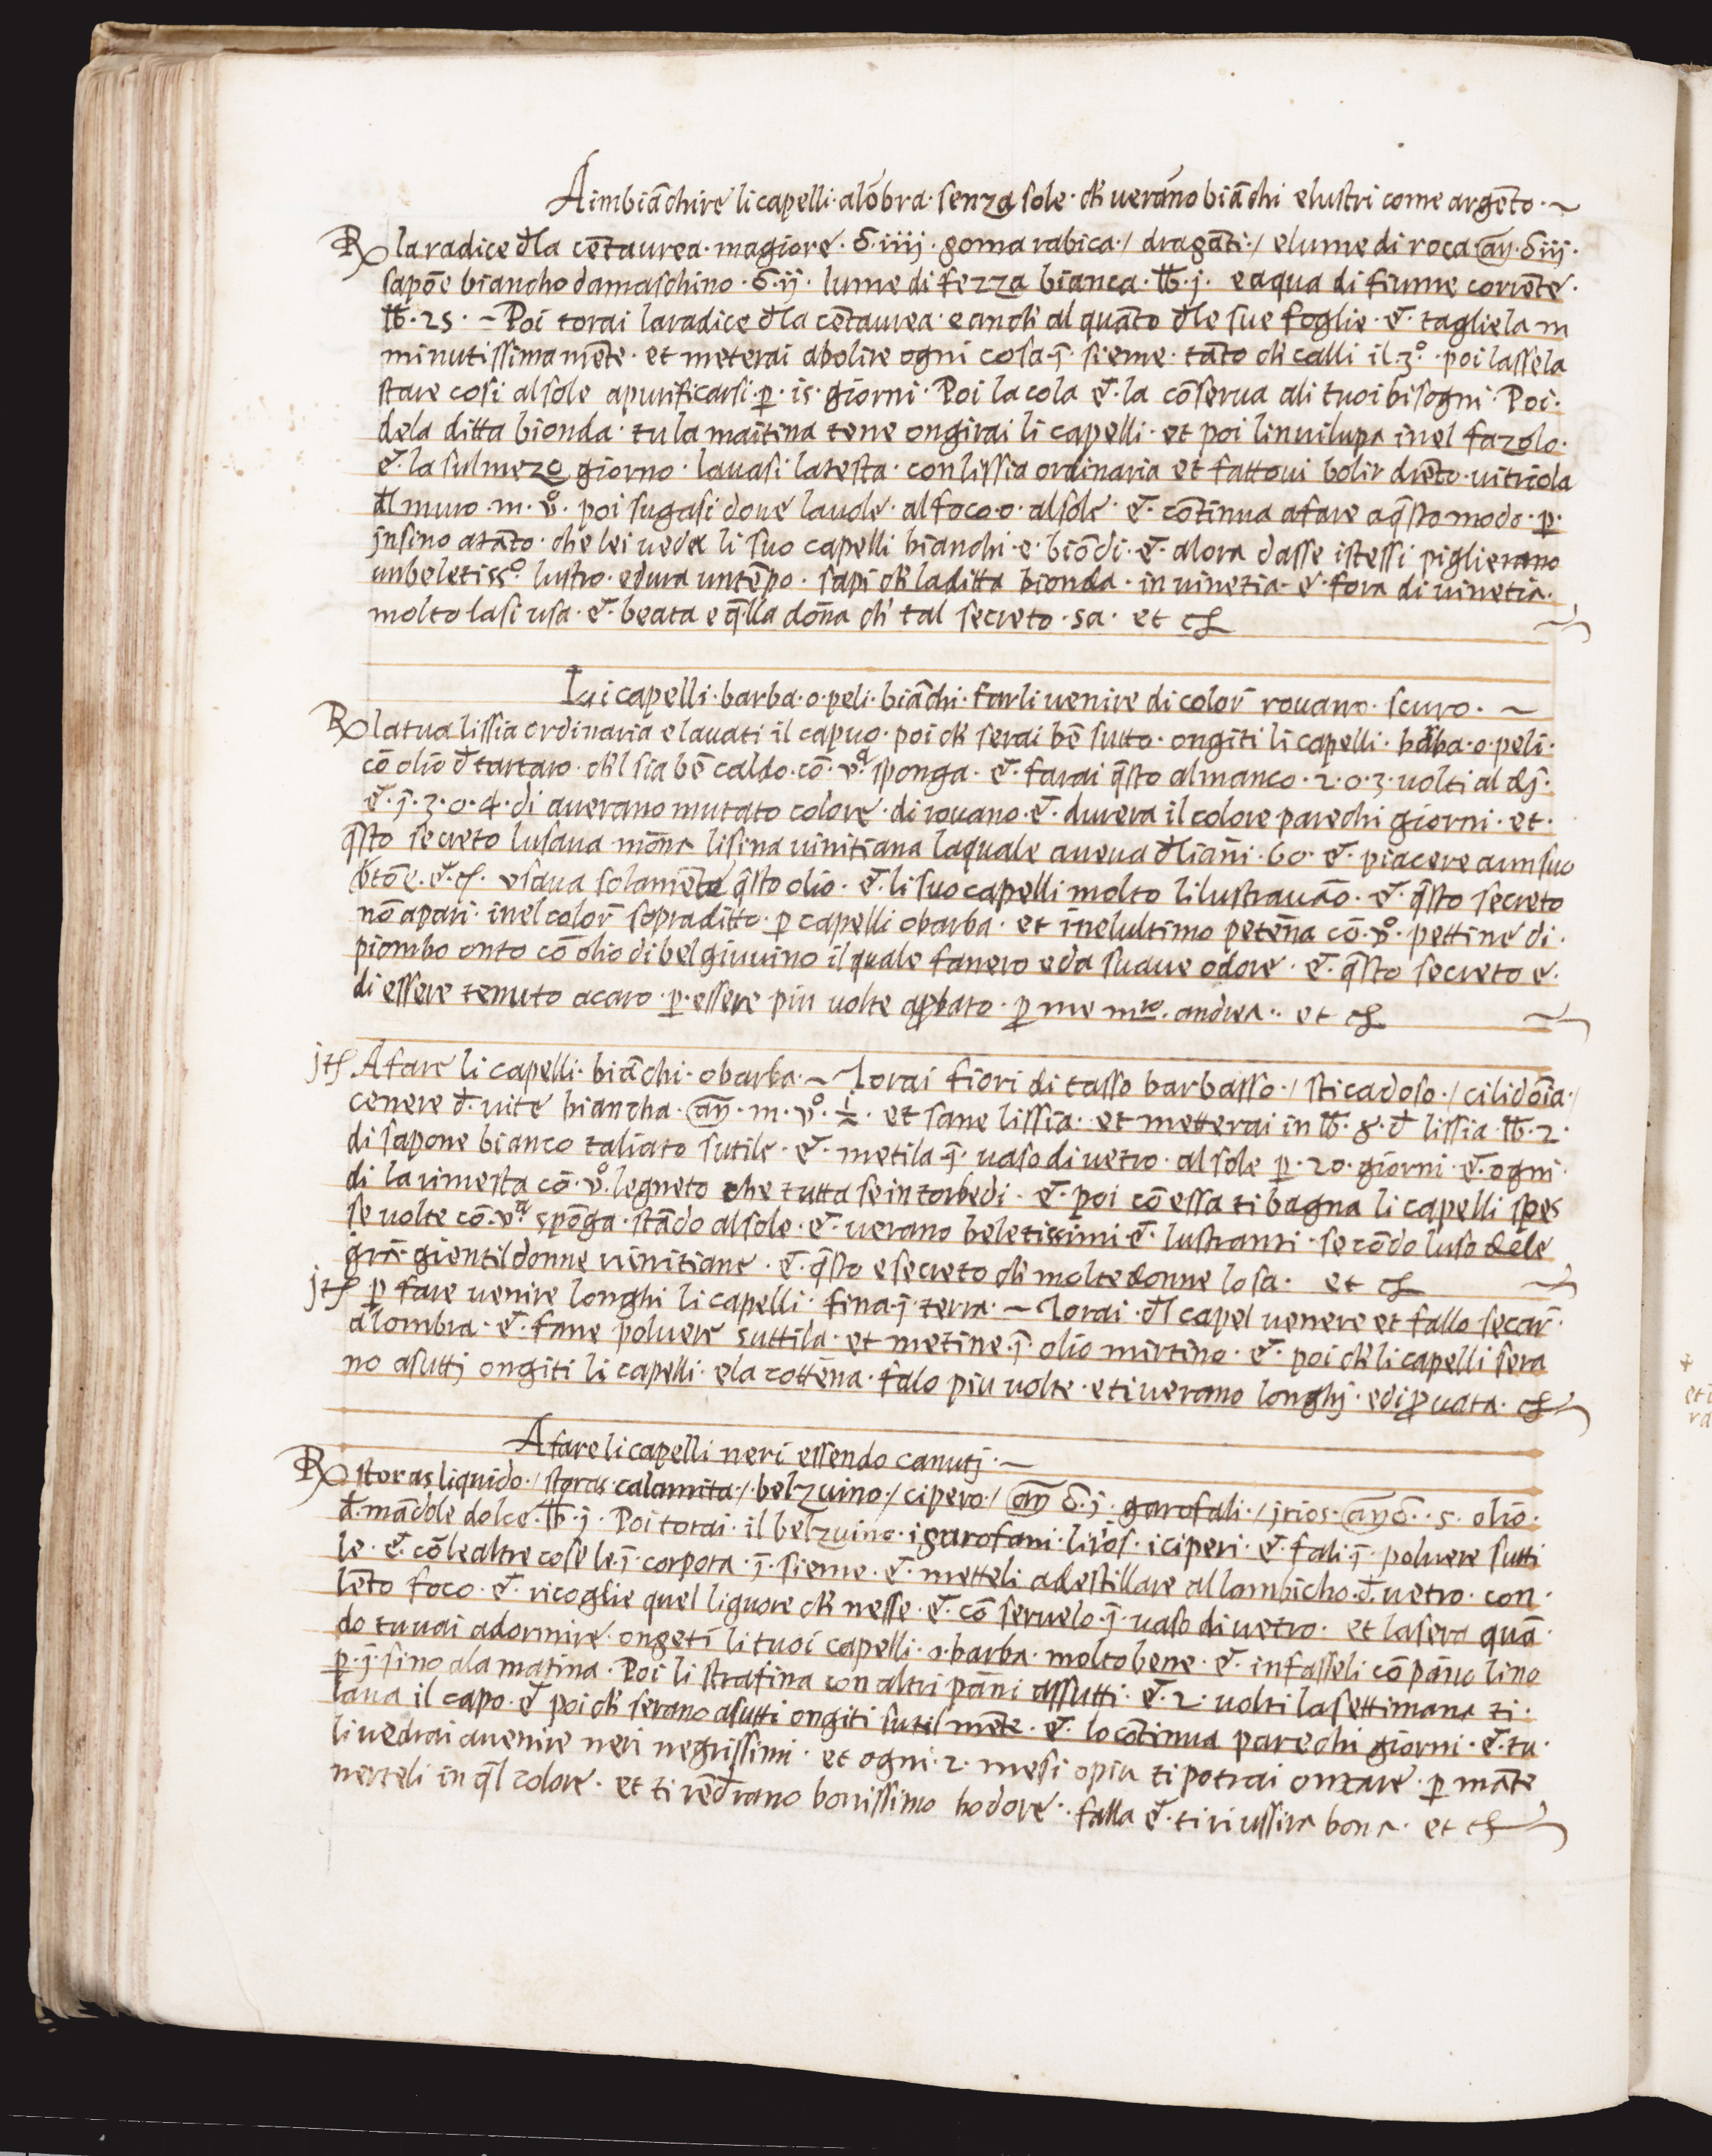 A imbiāchire li capelli · alōbra · senza sole · ch' uerāno biāchi elustri come argēto · ~
℞ la radice d̄la cētaurea · magiore · ℥ · iiij · goma rabica · / dragāti · / elume di roca · añ · ℥ iij ·
sapōe biancho damaschino · ℥ · ij · lume di fezza bianca · ℔ · j · e aqua di fiume corrēte ·
℔ · 25 · ~ Poi torai la radice d̄la cētaurea · e anch' al quāto d̄le sue foglie · et · tagliela m
minutissimamēte · et meterai abolire ogni cosa · ī · sieme · tāto ch' calli il · 3° · poi lassela
stare cosi al sole apurificarsi · p̱ · 15 · giorni · Poi la cola et · la cōserua ali tuoi bisogni · Poi ·
dela ditta bionda · tu la maitina tene ongirai li capelli · et poi linuilupa inel fazolo ·
et · la sul mezo giorno · lauasi la testa · con lissia ordinaria et fattoui bolir drēto · uitriola
d̄l muro · m · v° · poi sugasi doue la uole · al foco · o · al sole · et · cōtinua a fare a q̄sto modo · p̱ ·
jnsino a tāto · che lei uede li suo capelli bianchi · e · biōdi · et · alora dasse istessi piglierano
un beletiss° · lustro · e dura un tēpo · sapi ch' la ditta bionda · in uinetia · e · fora di uinetia ·
molto la si usa · et · beata e q̄lla dōna ch' tal secreto · sa · et cȩ
I li capelli · barba · o · peli · biāchi · farli uenire di color̄ rouano · scuro · ~
℞ la tua lissia ordinaria e lauati il capuo · poi ch' serai bē sutto · ongiti li capelli · barba · o · peli ·
cō olio d̄ tartaro · ch'l sia bē caldo · cō · vª · sponga · et · farai q̄sto almanco · 2 · o · 3 · uolti al dj ·
et · ī · 3 · o · 4 · di auerano mutato colore · di rouano · et · durera il colore parechi giorni · et ·
q̄sto secreto lusaua mōna lisena uinitiana la quale aueua d̄li āni · 60 · et · piacere a un suo
et · cȩ · usaua solamēte q̄sto olio · et · li suo capelli molto li lustrauāo · et · q̄sto secreto
nō a pari · inel color̄ sopraditto · p̱ capelli o barba · et inelultimo petēna cō · v° · pettine di ·
piombo onto cō olio di belgiuuino il quale fa nero e da suaue odore · et · q̄sto secreto e ·
di essere tenuto a caro · p̱ · essere piu uolte ap̱bato · p̱ me mro · andrea · et cȩ
jtȩ A fare li capelli · biāchi · o barba · ~ Torai fiori di tasso barbasso · / sticadoso · / cilidōia · /
cenere d̄ · uite biancha · añ · m · v° · ½ · et fane lissia · et metterai in ℔ · 8 · d̄ lissia · ℔ · 2 ·
di sapone bianco taliato sutile · et · metila · ī · uaso di uetro · al sole p̱ · 20 · giorni · et · ogni ·
di la rimesta cō · v° · legneto che tutta se intorbedi · et · poi cō essa ti bagna li capelli spes
se uolte cō · vª · spōga · stādo al sole · et · uerano beletissimi · et · lustranti · secōdo luso dele
grā · gientildonne uinitiane · et · q̄sto e secreto ch' molte donne lo sa · et cȩ
jtȩ p̱ fare uenire longhi li capelli · fina · ī · terra · ~ Torai · d̄l capel uenere et fallo secar̄ ·
alombra · et · fane poluere suttila · et metine · ī · olio mirtino · et · poi ch' li capelli sera
no asuttj ongiti li capelli · e la cottēna · falo piu uolte · e ti uerano longhj · e di p̱uata · cȩ
A fare li capelli neri essendo canutj · ~
℞ storas liquido · / storas calamita · / belzuino · / cipero · / añ ℥ · j · garofali · / jrios · añ ℥ · 5 · olio ·
d̄ · mādole dolce · ℔ · j · Poi torai · il belzuino · i garofani · li rios · i ciperi · et · fali · ī · poluere sutti
le · et · cō le altre cose le · ī · corpora · ī · sieme · et · metteli a destillare al lambicho · d̄ · uetro · con ·
lēto foco · et · ricoglie quel liquore ch' nesse · et · cōseruelo · ī · uaso di uetro · et la sera quā ·
do tu uai a dormire · ongeti li tuoi capelli · o · barba · molto bene · et · infasseli cō pāno lino
p̱ · ī · sino ala matina · Poi li strafina con altri pāni assutti · et · 2 · uolti la settimana ti ·
laua il capo · et poi ch' serano asutti ongiti sutilmēte · et · lo cōtinua parechi giorni · et · tu ·
li uedrai auenire neri negrissimi · et ogni · 2 · mesi o piu ti potrai ontare · p̱ māte
nerteli in q̄l colore · et ti rēdrano bonissimo hodore · falla et · ti riussira bona · et cȩ